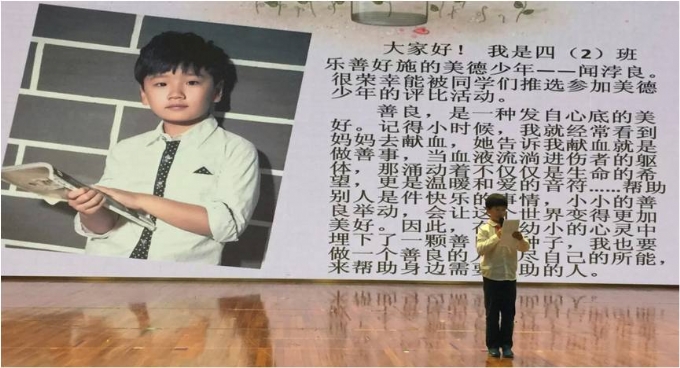 大家好！ 我是四（2）班
乐善好施的美德少年——闻浡良。
很荣幸能被同学们推选参加美德
少年的评比活动。
善良，是一种发自心底的美
好。记得小时候，我就经常看到
妈妈去献血，她告诉我献血就是
做善事，当血液流淌进伤者的躯
体，那涌动着不仅仅是生命的希
望，更是温暖和爱的音符……帮助
别人是件快乐的事情，小小的善
良举动，会让这 世界变得更加
美好。因此， 幼小的心灵中
埋下了一颗善 种子，我也要
做一个善良的人 尽自己的所能，
来帮助身边需要 助的人。